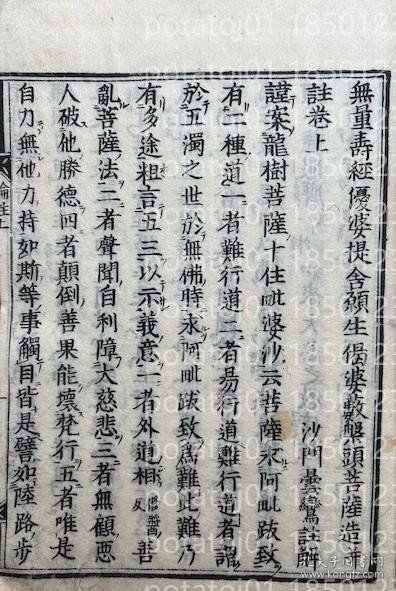 無量壽經優婆提舍願生偈婆藪槃頭菩薩造并
註卷上
沙門曇鸞註解
謹案龍樹菩薩十住毗婆沙云菩薩求阿毗跋致
有二種道一者難行道二者易行道難行道者謂
於五濁之世於無佛時求阿毗跋致爲難此難乃
有多途粗言五三以示義意一者外道相 修醬反 善
亂菩薩法二者聲聞自利障大慈悲三者無顧惡
人破他勝德四者顛倒善果能壞梵行五者唯是
自力無他力持如斯等事觸目皆是譬如陸路步
論註上
potatoj01 185012
孔夫子旧书网
www.kongfz.com